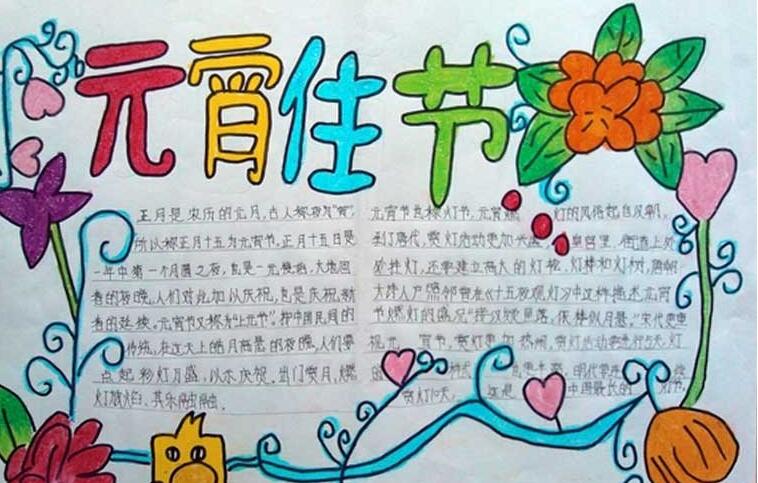 元宵佳节
正月是农历的元月,古人称夜为"宵",
所以称正月十五为元宵节。正月十五日是
一年中第一个月圆之夜,也是一元复始,大地回
春的夜晚,人们对此加以庆祝,也是庆祝新
春的延续。元宵节又称为"上元节"。按中国民间的
传统,在这天上皓月高悬的夜晚,人们要
点起彩灯万盏,以示庆贺。出门赏月,燃
灯放焰、其乐融融。
元宵节也称灯节,元宵燃 灯的风俗起自汉朝。
到了唐代,赏灯活动更加 皇宫里、街道上处
处挂灯,还要建立高大的灯轮、灯楼和灯树,唐朝
大诗人卢照邻曾在《十五夜观灯》中这样描述元宵
节燃灯的盛况"接汉疑星落,依楼似月悬。"宋代更重
视元 宵节,赏灯更加热闹,赏灯活动要进行5天,灯
的 样式 也更丰富。明代要连
赏灯10天, 这是 中国最长的 灯节,